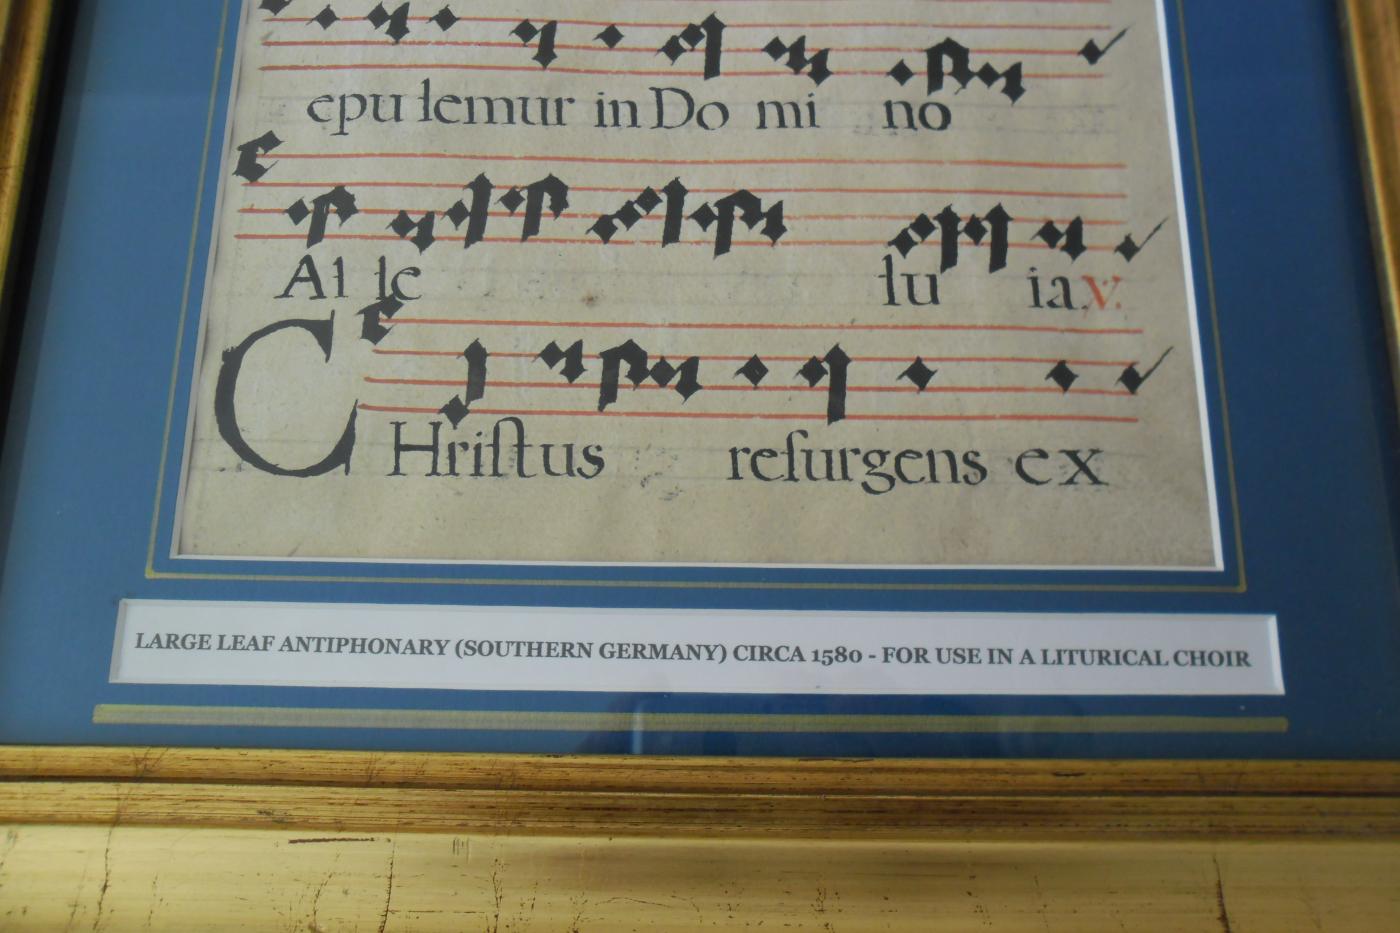 epu lemur in Do mi no
Al le lu ia v.
CHriſtus reſurgens ex
LARGE LEAF ANTIPHONARY (SOUTHERN GERMANY) CIRCA 1580 - FOR USE IN A LITURICAL CHOIR